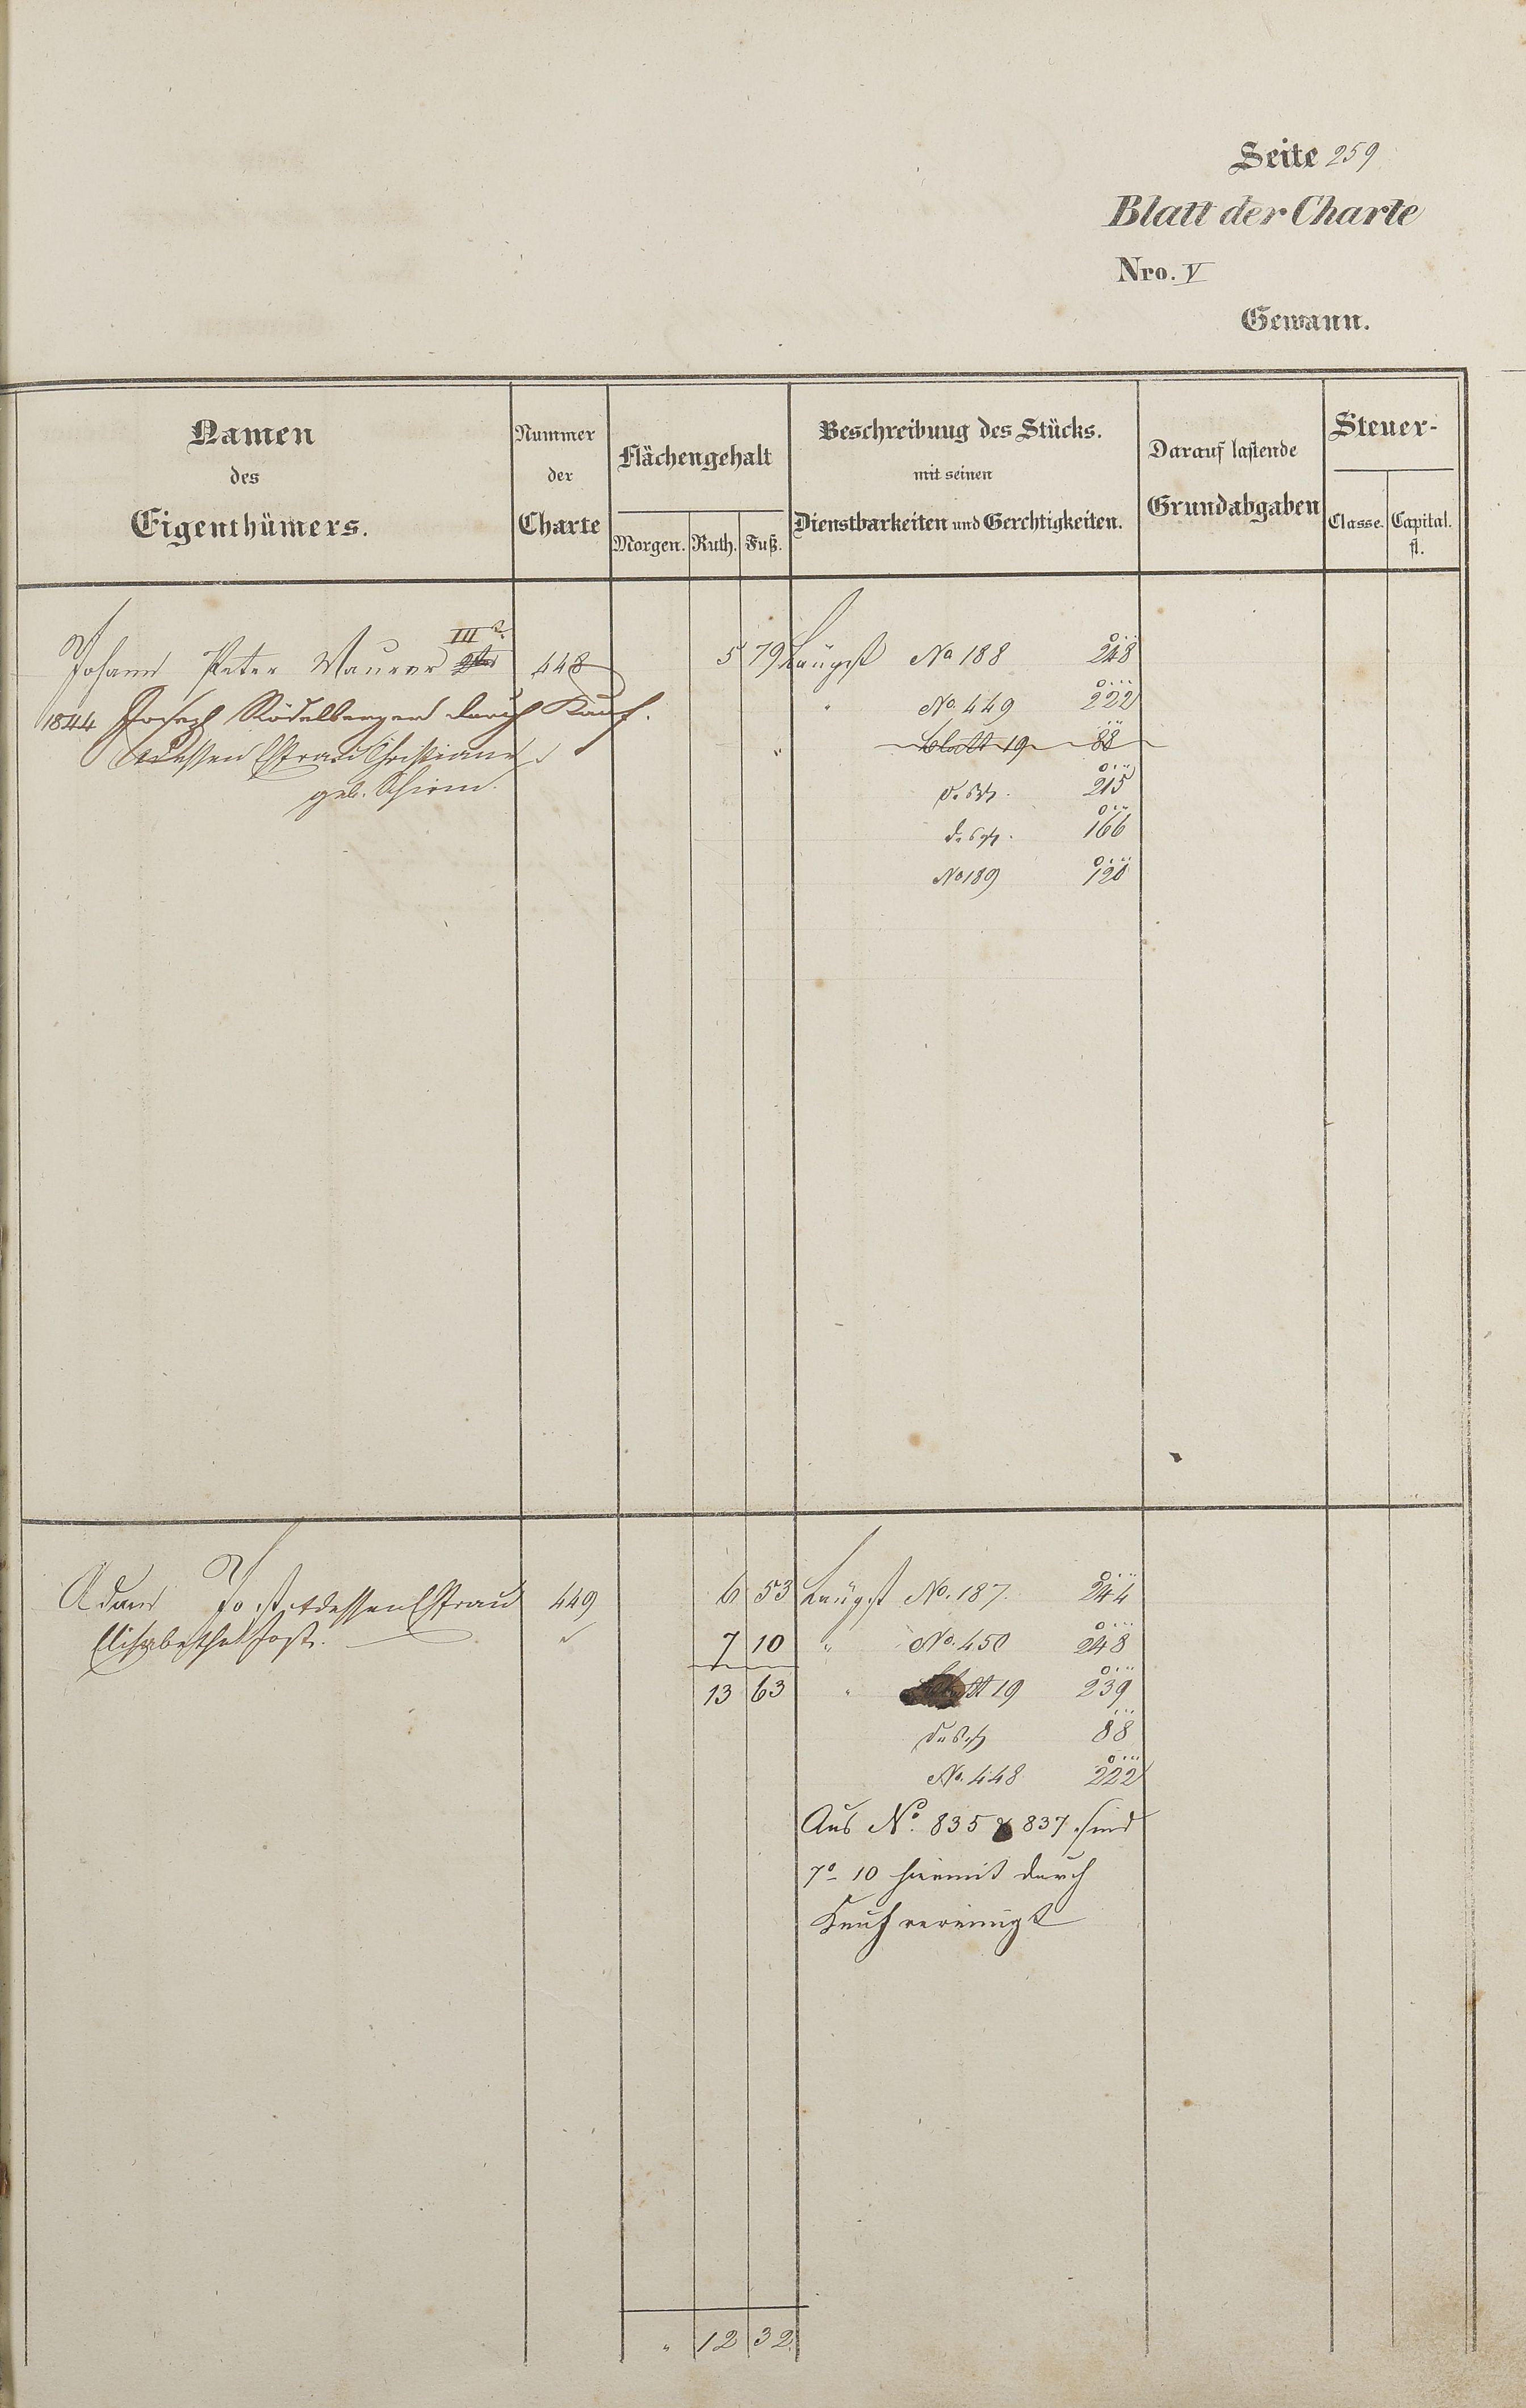 Seite 259
Blatt der Charte
Nro. V
Gewann.
Namen des Eigenthümers.
Nummer der Charte
Flächengehalt
Morgen. Ruth. Fuß.
Beschreibung des Stücks. mit seinen Dienstbarkeiten und Gerchtigkeiten.
Darauf lastende Grundabgaben
Steuer-
Classe. Capital. fl.
III
Johann Peter Maurer 2ter 448 5 79 Längst No 188 248
1844 Joseph Rödelberger durch Kauf. " No. 449 222
et dessen Efrau Christiane " Blatt 19 88
geb. Schirm. 215
166
No 189 120
Adam Jost et dessen Efrau 449 6 53 Längst No. 187. 244
Elisabetha Jost. 7 10 " No. 450 248
13 63 " Blatt 19 239
88
No. 448 222
Aus No. 835 & 837 sind
7° 10 hiermit durch
Kauf vereinigt
" 12 32